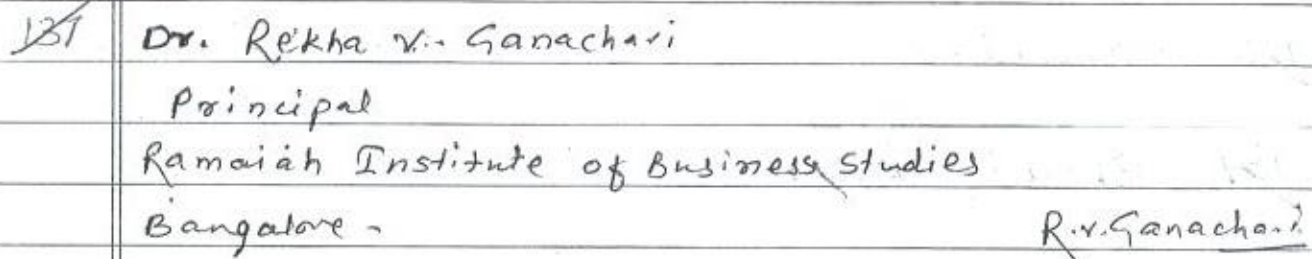 Dr. Rekha V. Ganachari
Principal
Ramaiah Institute of Business Studies
Bangalore - R.V. Ganachari